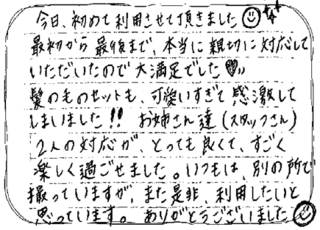 今日、初めて利用させて頂きました
最初から最後まで、本当に親切に対応して
いただいたので大満足でした
髪のものセットも、可愛いすぎて感激して
しまいました!! お姉さん達(スタッフさん)
2人の対応が、とっても良くて、すごく
楽しく過ごせました。いつもは、別の所で
撮っていますが、また是非、利用したいと
思っています。ありがとうございました